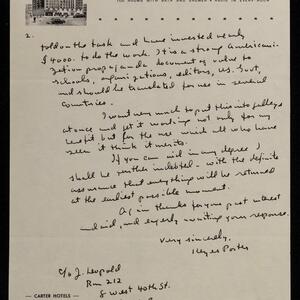 700 ROOMS WITH BATH AND SHOWER • RADIO IN EVERY ROOM
2.
told on the task and have invested nearly
$4000. to do the work. It is a strong Americani-
zation propaganda document of value to
schools, organizations, editors, U.S. Govt,
and should be translated for use in several
countries.
I want very much to put this into galleys
at once and get it working not only for my
benefit but for the use which all who have
seen it think it merits.
If you can aid in any degree I
shall be further indebted - with the definite
assurance that everything will be returned
at the earliest possible moment.
Again thanks for your past interest
and aid, and eagerly awaiting your response.
Very sincerely,
Keyes Porter
c/o J. Leupold
Rm 212
8 West 40th St.
CARTER HOTELS